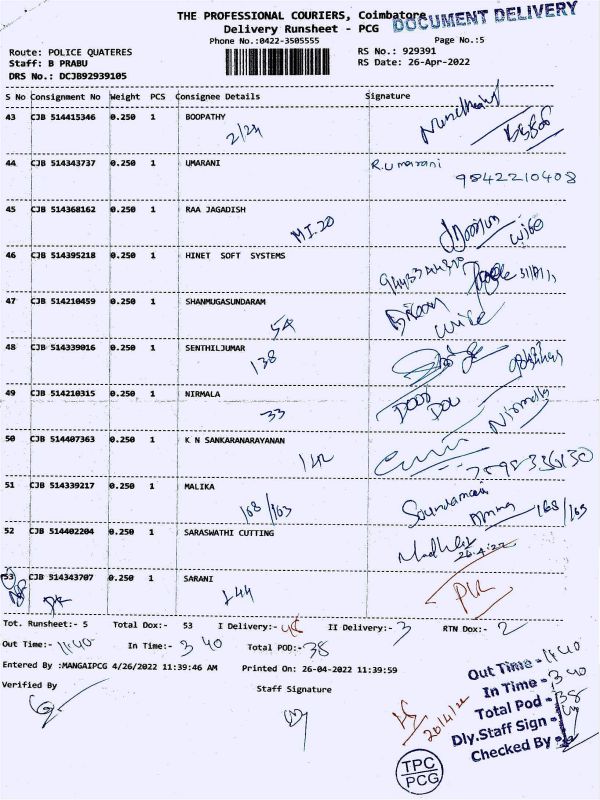 THE PROFESSIONAL COURIERS, Coimbatore
DOCUMENT DELIVERY
Delivery Runsheet - PCG
Phone No.:0422-3505555
Page No.:5
Route: POLICE QUATERES
RS No.: 929391
Staff: B PRABU
RS Date: 26-Apr-2022
DRS No.: DCJB92939105
S No Consignment No Weight PCS Consignee Details Signature
43 CJB 514415346 0.250 1 BOOPATHY
2/24
44 CJB 514343737 0.250 1 UMARANI R.Umarani
9842210408
45 CJB 514368162 0.250 1 RAA JAGADISH
MI.20 wife
46 CJB 514395218 0.250 1 HINET SOFT SYSTEMS
47 CJB 514210459 0.250 1 SHANMUGASUNDARAM
54 wife
48 CJB 514339016 0.250 1 SENTHILJUMAR
138
49 CJB 514210315 0.250 1 NIRMALA
33 Door Nirmala
50 CJB 514407363 0.250 1 K N SANKARANARAYANAN
142
51 CJB 514339217 0.250 1 MALIKA
168/163 168/163
52 CJB 514402204 0.250 1 SARASWATHI CUTTING
26.4.22
53 CJB 514343707 0.250 1 SARANI
144
Tot. Runsheet:- 5 Total Dox:- 53 I Delivery:- II Delivery:- 3 RTN Dox:- 2
Out Time:- 11:40 In Time:- 3 40 Total POD:- 38
Entered By :MANGAIPCG 4/26/2022 11:39:46 AM Printed On: 26-04-2022 11:39:59
Verified By
Staff Signature
Out Time - 11:40
In Time - 3 40
Total Pod - 38
Dly.Staff Sign -
Checked By -
TPC
PCG